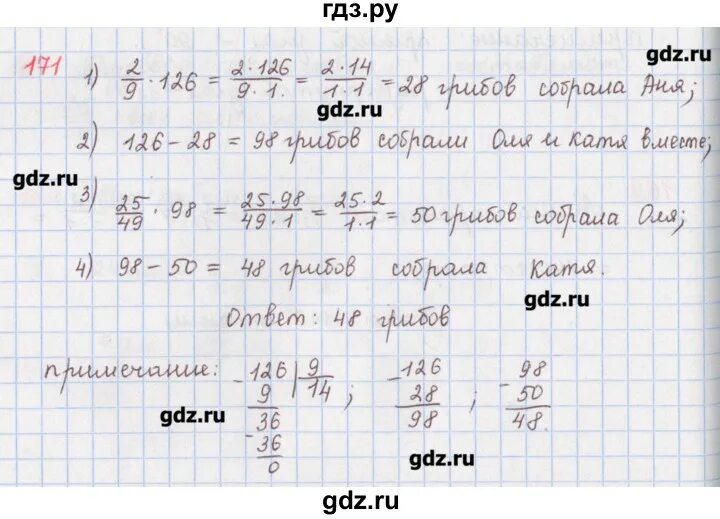 гдз.ру
171
1) 2/9 · 126 = 2·126/9·1 = 2·14/1·1 = 28 грибов собрала Аня;
gdz.ru
gdz.ru
2) 126 - 28 = 98 грибов собрали Оля и Катя вместе;
gdz.ru
3) 25/49 · 98 = 25·98/49·1 = 25·2/1·1 = 50 грибов собрала Оля;
4) 98 - 50 = 48 грибов собрала Катя.
gdz.ru
Ответ: 48 грибов
примечание: - 126 | 9 ; - 126 ; - 98
9 14 28 50
36 98 48.
- 36
0
gdz.ru
gdz.ru
gdz.ru